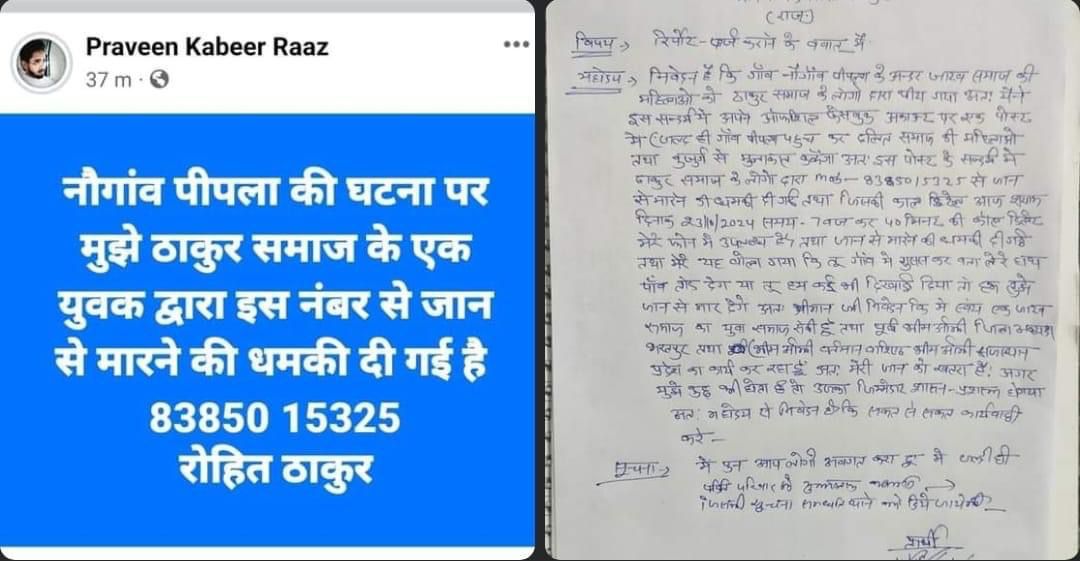 Praveen Kabeer Raaz
37 m ·
नौगांव पीपला की घटना पर
मुझे ठाकुर समाज के एक
युवक द्वारा इस नंबर से जान
से मारने की धमकी दी गई है
83850 15325
रोहित ठाकुर
(राज.)
विषय → रिपोर्ट दर्ज कराने के
महोदय → निवेदन है कि गाँव नौगाँव पीपला के अन्दर जाटव समाज की
महिलाओं को ठाकुर समाज के लोगों द्वारा पीटा गया अतः मैंने
इस सन्दर्भ में अपने फेसबुक अकाउंट पर एक पोस्ट
गाँव पीपला पहुच कर दलित समाज की महिलाओं
तथा बुजुर्गों से मुलाकात करूंगा अतः इस पोस्ट के सन्दर्भ में
ठाकुर समाज के लोगों द्वारा mob- 8385015325 से जान
से मारने की धमकी दी गई तथा जिसकी काल डिटेल आज
दिनांक 23/6/2024 समय - 7 बज कर 40 मिनट की कॉल
मेरे फोन में उपलब्ध है तथा जान से मारने की धमकी दी गई
तथा मेरे यह बोला गया कि तू गाँव में घुसकर बता तेरे हाथ
पाँव तोड़ देंगे या तू हम कई भी दिखाई दिया तो हम तुझे
जान से मार देंगे अतः श्रीमान जी निवेदन कि मे एक जाटव
समाज का युवा समाज सेवी हूँ तथा पूर्व भीम आर्मी जिला अध्यक्ष
भरतपुर तथा भीम आर्मी
का कार्य कर रहा हूँ अतः मेरी जान को खतरा है। अगर
मुझे कुछ भी होता है तो उसका जिम्मेदार शासन-प्रशासन होगा
अतः महोदय से निवेदन है कि सख्त से सख्त कार्यवाही
करे -
सूचना → मे पुनः आप लोगों अवगत करा दू मे जल्दी ही
परिवार से
जिसकी सूचना थाने को दिये जायेगी
प्रार्थी